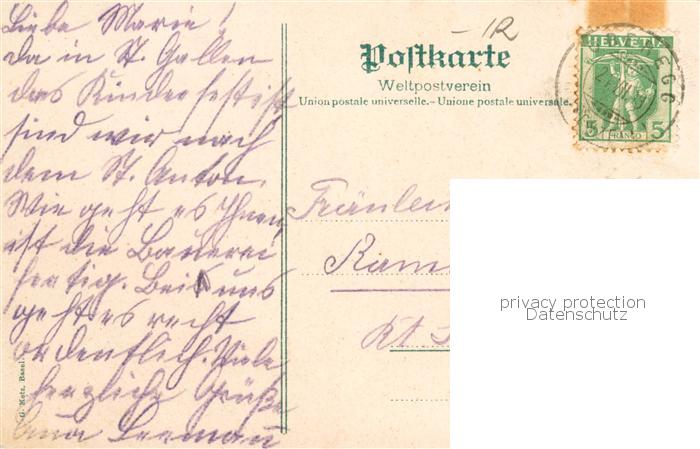 Liebe Marie!
da in St. Gallen
das Kinderfest ist
sind wir nach
dem St. Anton.
Wie geht es Ihnen,
ist die Bauerei
fertig. Bei uns
geht es recht
ordentlich. Viele
herzliche Grüße
Anna Leemann
G. Metz, Basel.
1R
Postkarte
Weltpostverein
Union postale universelle. - Unione postale universale.
HELVETIA
EGG
5 FRANCO 5
Fräulein
Kt. S
privacy protection
Datenschutz